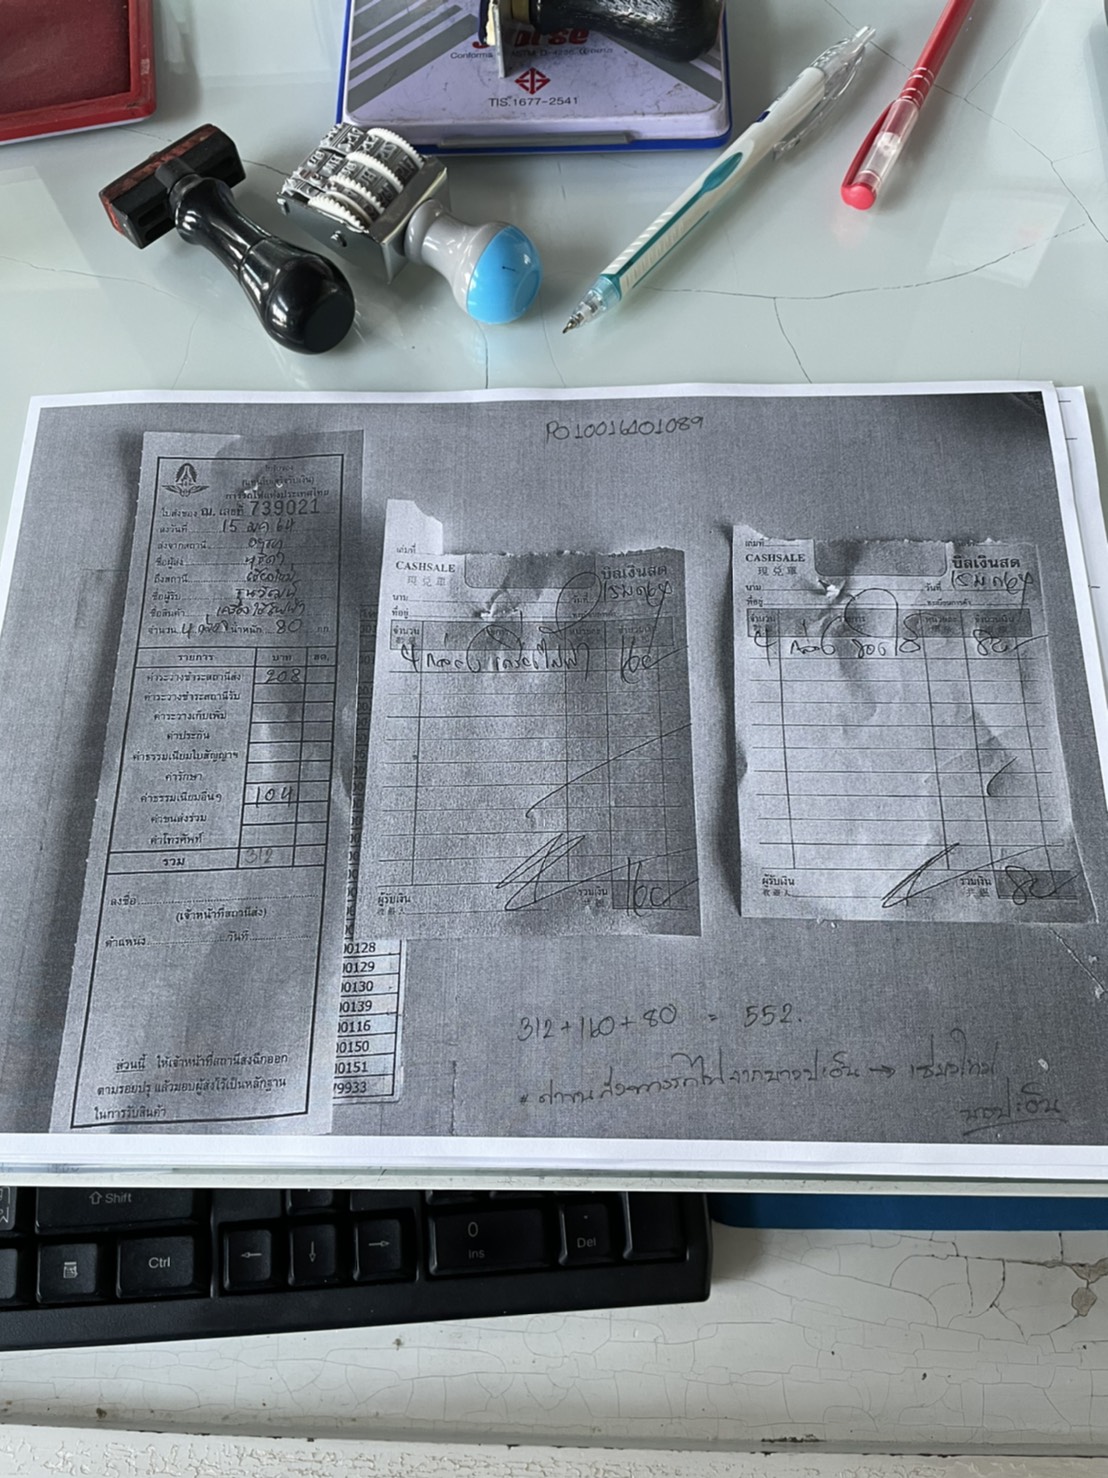 Horse
TIS.1677-2541
PO10016101089
การรถไฟแห่งประเทศไทย
ใบส่งของ ฌ. เลขที่ 739021
ส่งวันที่ 15 มค 64
ส่งจากสถานี
ชื่อผู้ส่ง
ถึงสถานี เชียงใหม่
ชื่อผู้รับ
ชื่อสินค้า เครื่องใช้ไฟฟ้า
จำนวน 4 กล่อง น้ำหนัก 80 กก
รายการ บาท สต.
ค่าระวางชำระสถานีส่ง 208
ค่าระวางชำระสถานีรับ
ค่าระวางเก็บเพิ่ม
ค่าประกัน
ค่าธรรมเนียมใบสัญญาฯ
ค่ารักษา
ค่าธรรมเนียมอื่นๆ 104
ค่าขนส่งร่วม
ค่าโทรศัพท์
รวม 312
ลงชื่อ
(เจ้าหน้าที่สถานีส่ง)
ตำแหน่ง วันที่
ส่วนนี้ ให้เจ้าหน้าที่สถานีส่งฉีกออก
ตามรอยปรุ แล้วมอบผู้ส่งไว้เป็นหลักฐาน
ในการรับสินค้า
00128
00129
00130
00139
00116
00150
00151
79933
เล่มที่
CASHSALE บิลเงินสด
現兑單
นาม วันที่ 15 มค 64
ที่อยู่
จำนวน จำนวนเงิน
4 กล่อง เครื่องไฟฟ้า 160
ผู้รับเงิน รวมเงิน 160
เล่มที่
CASHSALE บิลเงินสด
現兑單
นาม วันที่ 15 มค 64
ที่อยู่
จำนวน รายการ จำนวนเงิน
4 กล่อง 80
ผู้รับเงิน รวมเงิน 80
312+160+80 = 552.
* ค่าขนส่งทางรถไฟจากบางปะอิน → เชียงใหม่
บางปะอิน
Shift
Ctrl
0
Ins
Del